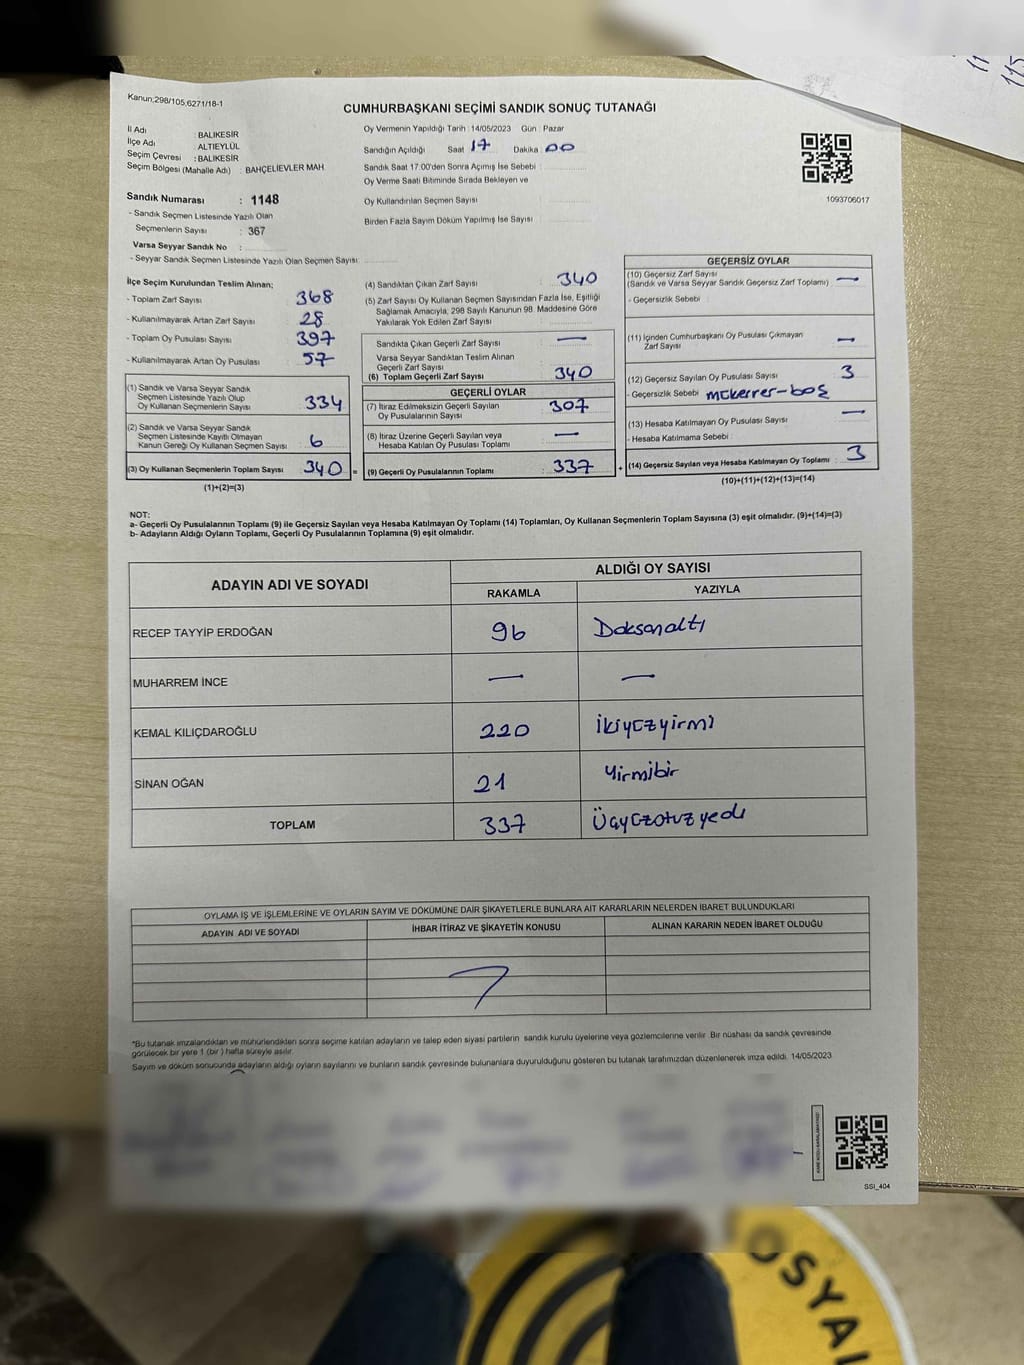 Kanun;298/105,6271/18-1
CUMHURBAŞKANI SEÇİMİ SANDIK SONUÇ TUTANAĞI
İl Adı : BALIKESİR
İlçe Adı : ALTIEYLÜL
Seçim Çevresi : BALIKESİR
Seçim Bölgesi (Mahalle Adı) : BAHÇELİEVLER MAH.
Sandık Numarası : 1148
- Sandık Seçmen Listesinde Yazılı Olan
Seçmenlerin Sayısı : 367
Varsa Seyyar Sandık No :
- Seyyar Sandık Seçmen Listesinde Yazılı Olan Seçmen Sayısı:
Oy Vermenin Yapıldığı Tarih :14/05/2023 Gün : Pazar
Sandığın Açıldığı Saat 17 Dakika 00
Sandık Saat 17:00'den Sonra Açımış İse Sebebi :
Oy Verme Saati Bitiminde Sırada Bekleyen ve
Oy Kullandırılan Seçmen Sayısı
Birden Fazla Sayım Döküm Yapılmış İse Sayısı
1093706017
İlçe Seçim Kurulundan Teslim Alınan;
- Toplam Zarf Sayısı 368
- Kullanılmayarak Artan Zarf Sayısı 28
- Toplam Oy Pusulası Sayısı 397
- Kullanılmayarak Artan Oy Pusulası 57
(1) Sandık ve Varsa Seyyar Sandık
Seçmen Listesinde Yazılı Olup
Oy Kullanan Seçmenlerin Sayısı : 334
(2) Sandık ve Varsa Seyyar Sandık
Seçmen Listesinde Kayıtlı Olmayan
Kanun Gereği Oy Kullanan Seçmen Sayısı : 6
(3) Oy Kullanan Seçmenlerin Toplam Sayısı : 340
(1)+(2)=(3)
(4) Sandıktan Çıkan Zarf Sayısı : 340
(5) Zarf Sayısı Oy Kullanan Seçmen Sayısından Fazla İse, Eşitliği
Sağlamak Amacıyla, 298 Sayılı Kanunun 98. Maddesine Göre
Yakılarak Yok Edilen Zarf Sayısı
Sandıkta Çıkan Geçerli Zarf Sayısı : —
Varsa Seyyar Sandıktan Teslim Alınan
Geçerli Zarf Sayısı
(6) Toplam Geçerli Zarf Sayısı : 340
GEÇERLİ OYLAR
(7) İtiraz Edilmeksizin Geçerli Sayılan
Oy Pusulalarının Sayısı : 307
(8) İtiraz Üzerine Geçerli Sayılan veya
Hesaba Katılan Oy Pusulası Toplamı : —
= (9) Geçerli Oy Pusulalarının Toplamı : 337
GEÇERSİZ OYLAR
(10) Geçersiz Zarf Sayısı
(Sandık ve Varsa Seyyar Sandık Geçersiz Zarf Toplamı) : —
- Geçersizlik Sebebi :
(11) İçinden Cumhurbaşkanı Oy Pusulası Çıkmayan
Zarf Sayısı : —
(12) Geçersiz Sayılan Oy Pusulası Sayısı : 3
- Geçersizlik Sebebi : mükerrer-boş
(13) Hesaba Katılmayan Oy Pusulası Sayısı : —
- Hesaba Katılmama Sebebi :
+ (14) Geçersiz Sayılan veya Hesaba Katılmayan Oy Toplamı : 3
(10)+(11)+(12)+(13)=(14)
NOT:
a- Geçerli Oy Pusulalarının Toplamı (9) ile Geçersiz Sayılan veya Hesaba Katılmayan Oy Toplamı (14) Toplamları, Oy Kullanan Seçmenlerin Toplam Sayısına (3) eşit olmalıdır. (9)+(14)=(3)
b- Adayların Aldığı Oyların Toplamı, Geçerli Oy Pusulalarının Toplamına (9) eşit olmalıdır.
ADAYIN ADI VE SOYADI
ALDIĞI OY SAYISI
RAKAMLA YAZIYLA
RECEP TAYYİP ERDOĞAN 96 Doksanaltı
MUHARREM İNCE — —
KEMAL KILIÇDAROĞLU 220 İkiyüzyirmi
SİNAN OĞAN 21 Yirmibir
TOPLAM 337 Üçyüzotuzyedi
OYLAMA İŞ VE İŞLEMLERİNE VE OYLARIN SAYIM VE DÖKÜMÜNE DAİR ŞİKAYETLERLE BUNLARA AİT KARARLARIN NELERDEN İBARET BULUNDUKLARI
ADAYIN ADI VE SOYADI İHBAR İTİRAZ VE ŞİKAYETİN KONUSU ALINAN KARARIN NEDEN İBARET OLDUĞU
*Bu tutanak imzalandıktan ve mühürlendikten sonra seçime katılan adayların ve talep eden siyasi partilerin sandık kurulu üyelerine veya gözlemcilerine verilir. Bir nüshası da sandık çevresinde
görülecek bir yere 1 (bir) hafta süreyle asılır.
Sayım ve döküm sonucunda adayların aldığı oyların sayılarını ve bunların sandık çevresinde bulunanlara duyurulduğunu gösteren bu tutanak tarafımızdan düzenlenerek imza edildi. 14/05/2023
SSI_404
OSYAL